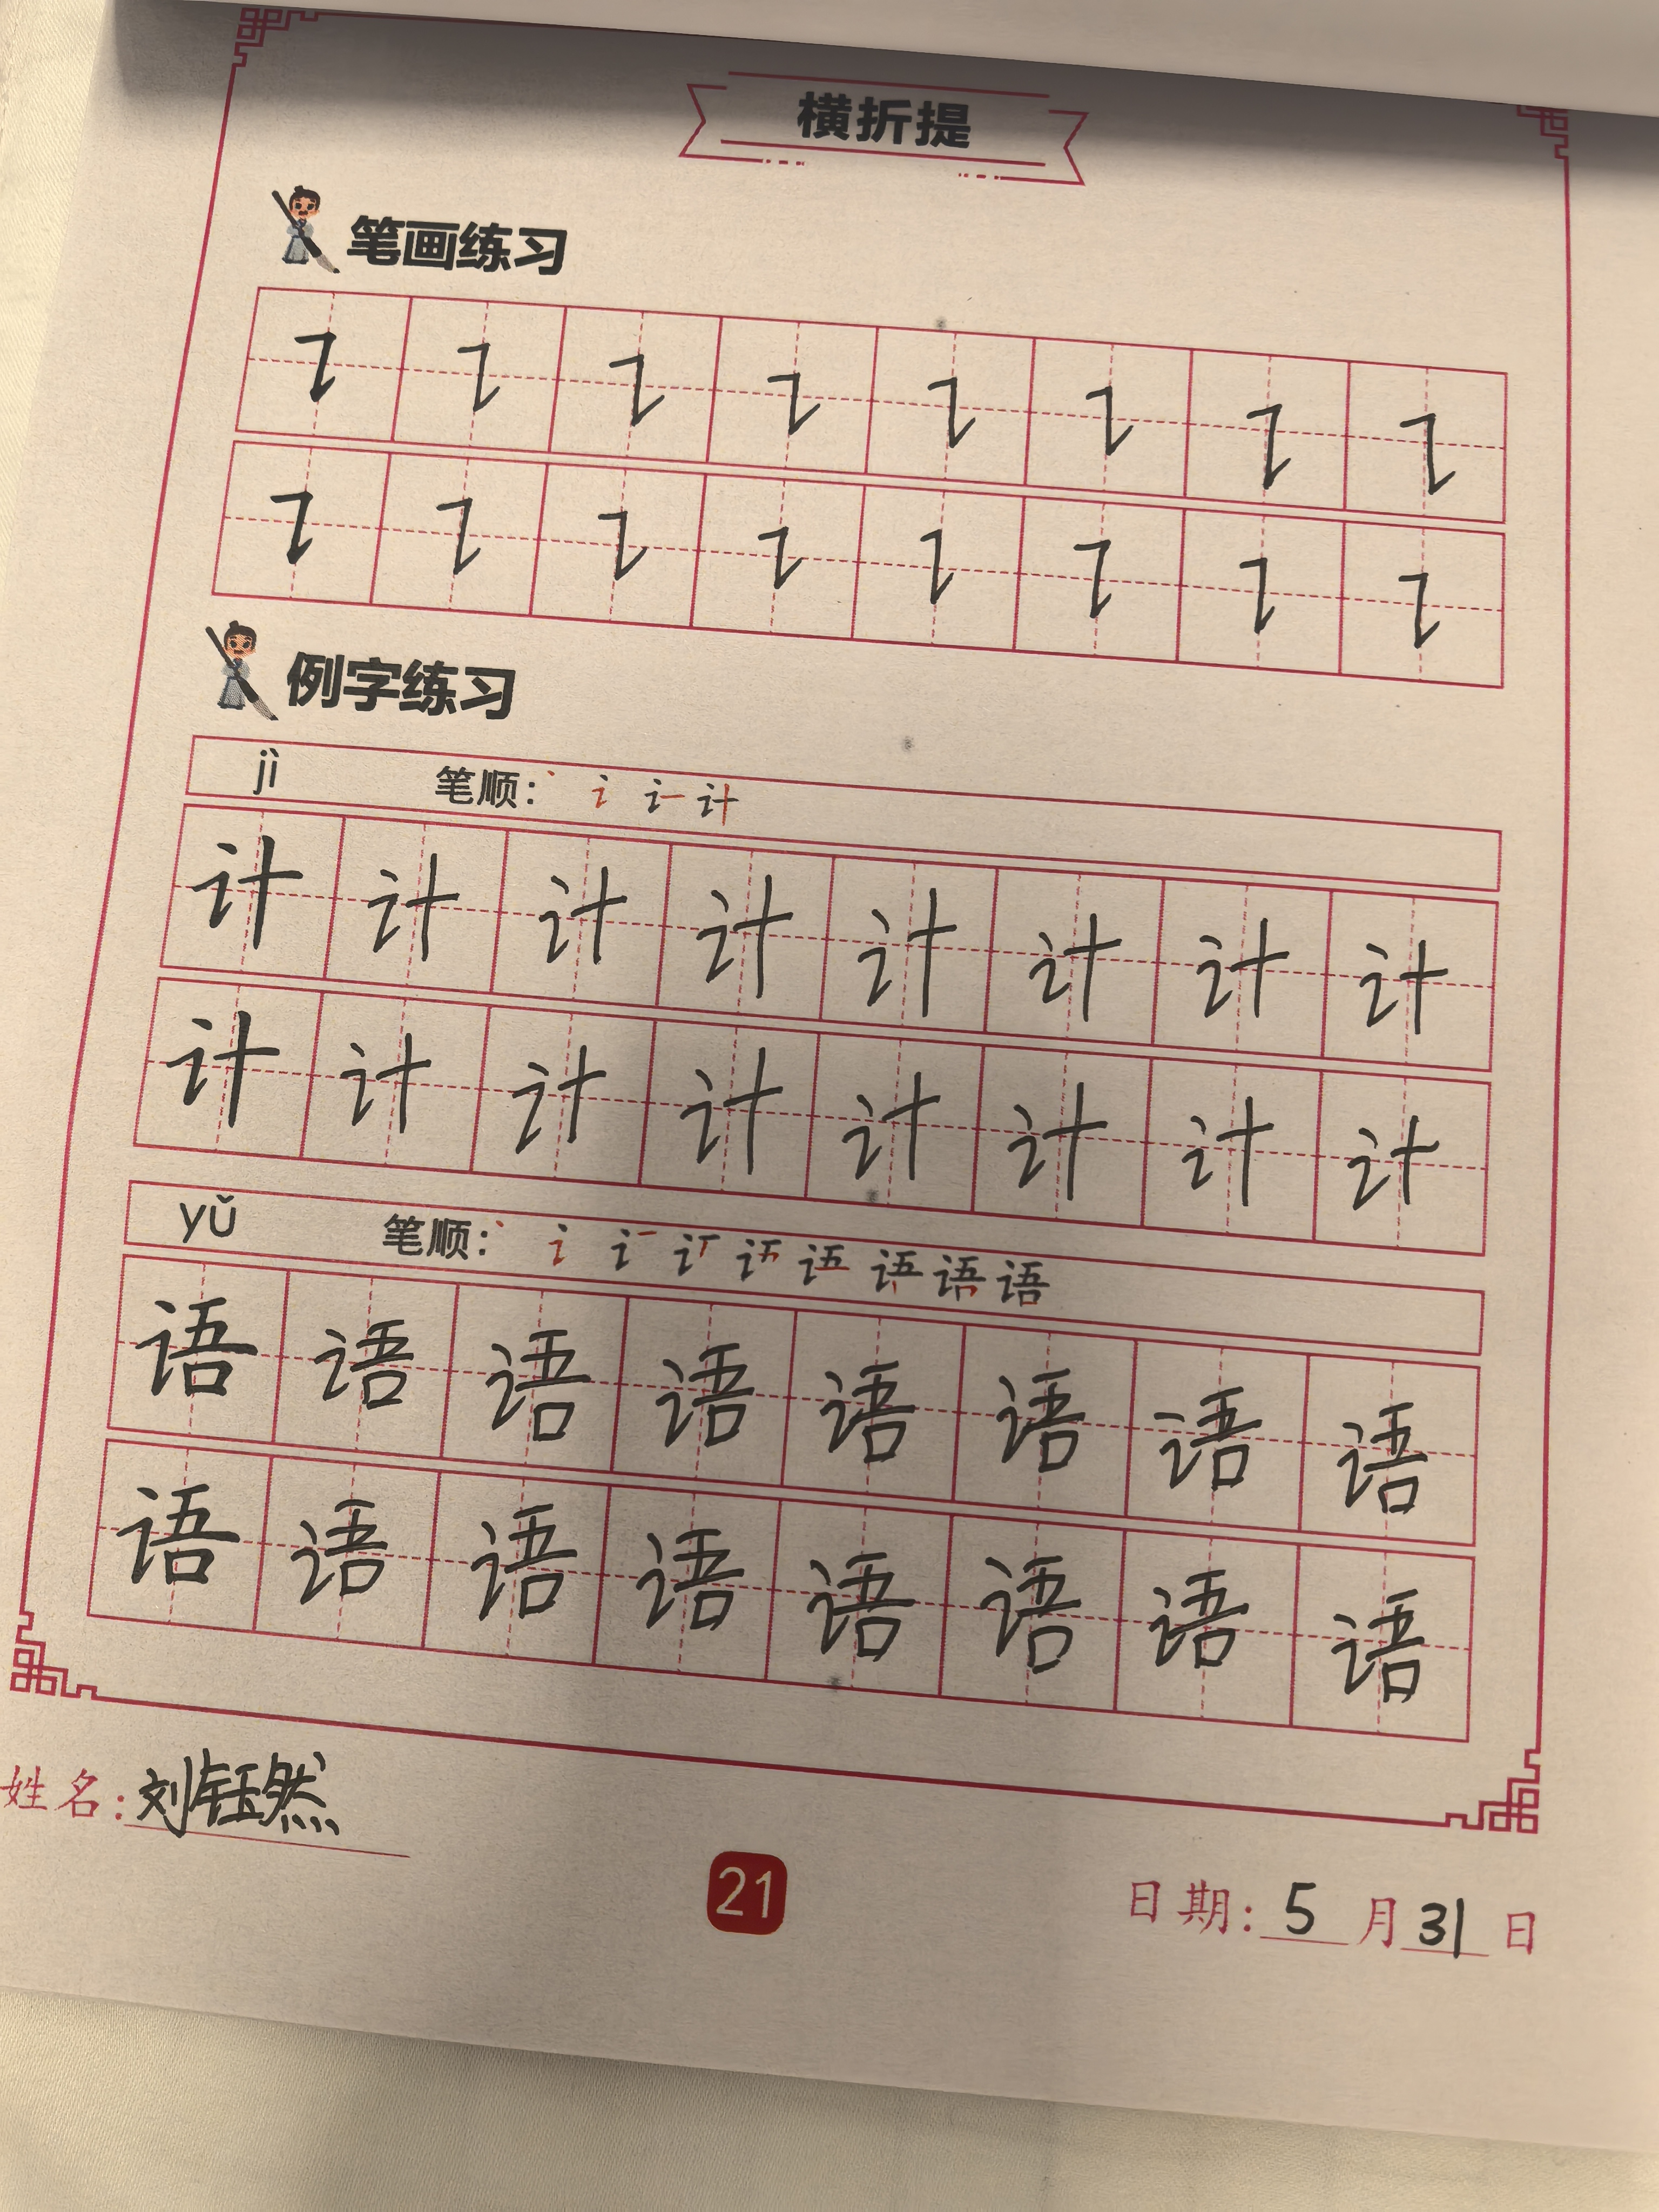 横折提
笔画练习
㇊ ㇊ ㇊ ㇊ ㇊ ㇊ ㇊ ㇊
㇊ ㇊ ㇊ ㇊ ㇊ ㇊ ㇊ ㇊
例字练习
jì 笔顺：丶 讠 计
计 计 计 计 计 计 计 计
计 计 计 计 计 计 计 计
yǔ 笔顺：丶 讠 语
语 语 语 语 语 语 语 语
语 语 语 语 语 语 语 语
姓名：刘钰然
21
日期：5月31日